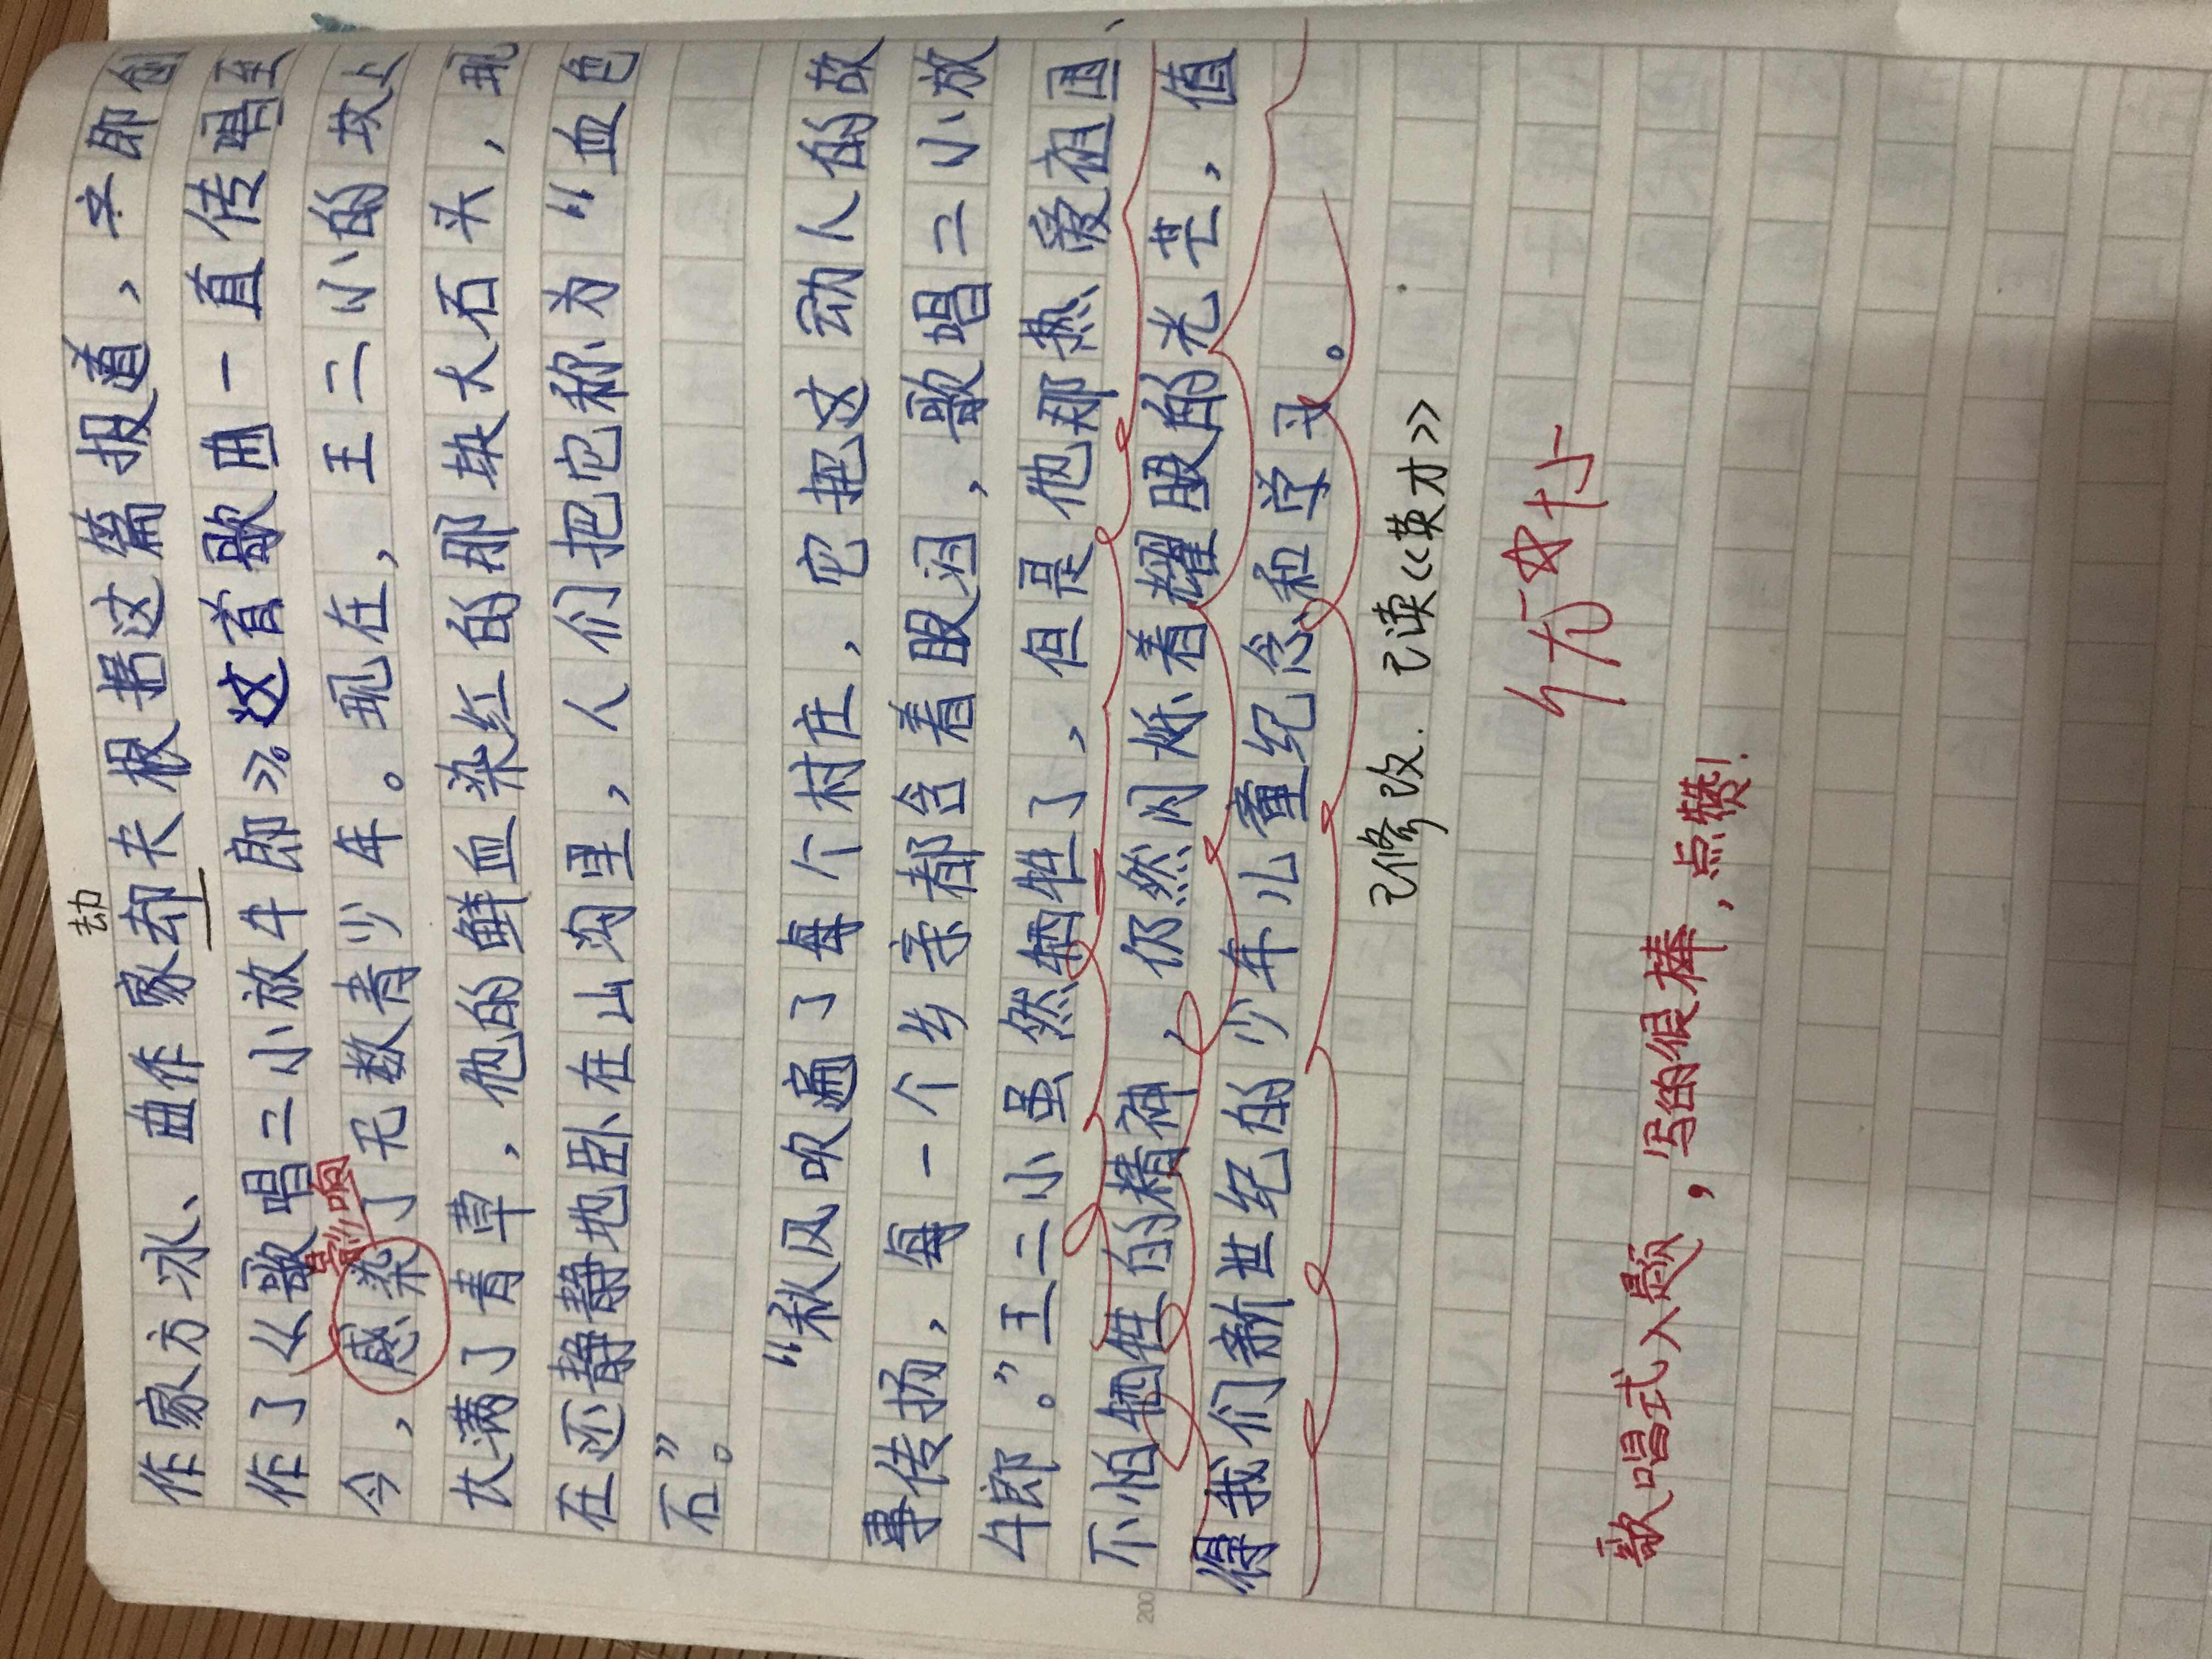 劫
作家方冰、曲作家却夫根据这篇报道,立即创
作了《歌唱二小放牛郎》。这首歌曲一直传唱至
影响
今,感染了无数青少年。现在,王二小的坟上
长满了青草,他的鲜血染红的那块大石头,现
在还静静地卧在山沟里,人们把它称为“血色
石”。
“秋风吹遍了每个村庄,它把这动人的故
事传扬,每一个乡亲都含着眼泪,歌唱二小放
牛郎。”王二小虽然牺牲了,但是他那热爱祖国、
不怕牺牲的精神,仍然闪烁着耀眼的光芒,值
得我们新世纪的少年儿童纪念和学习。
已修改. 已读《英才》
优☆十
歌唱式入题,写的很棒,点赞!
200